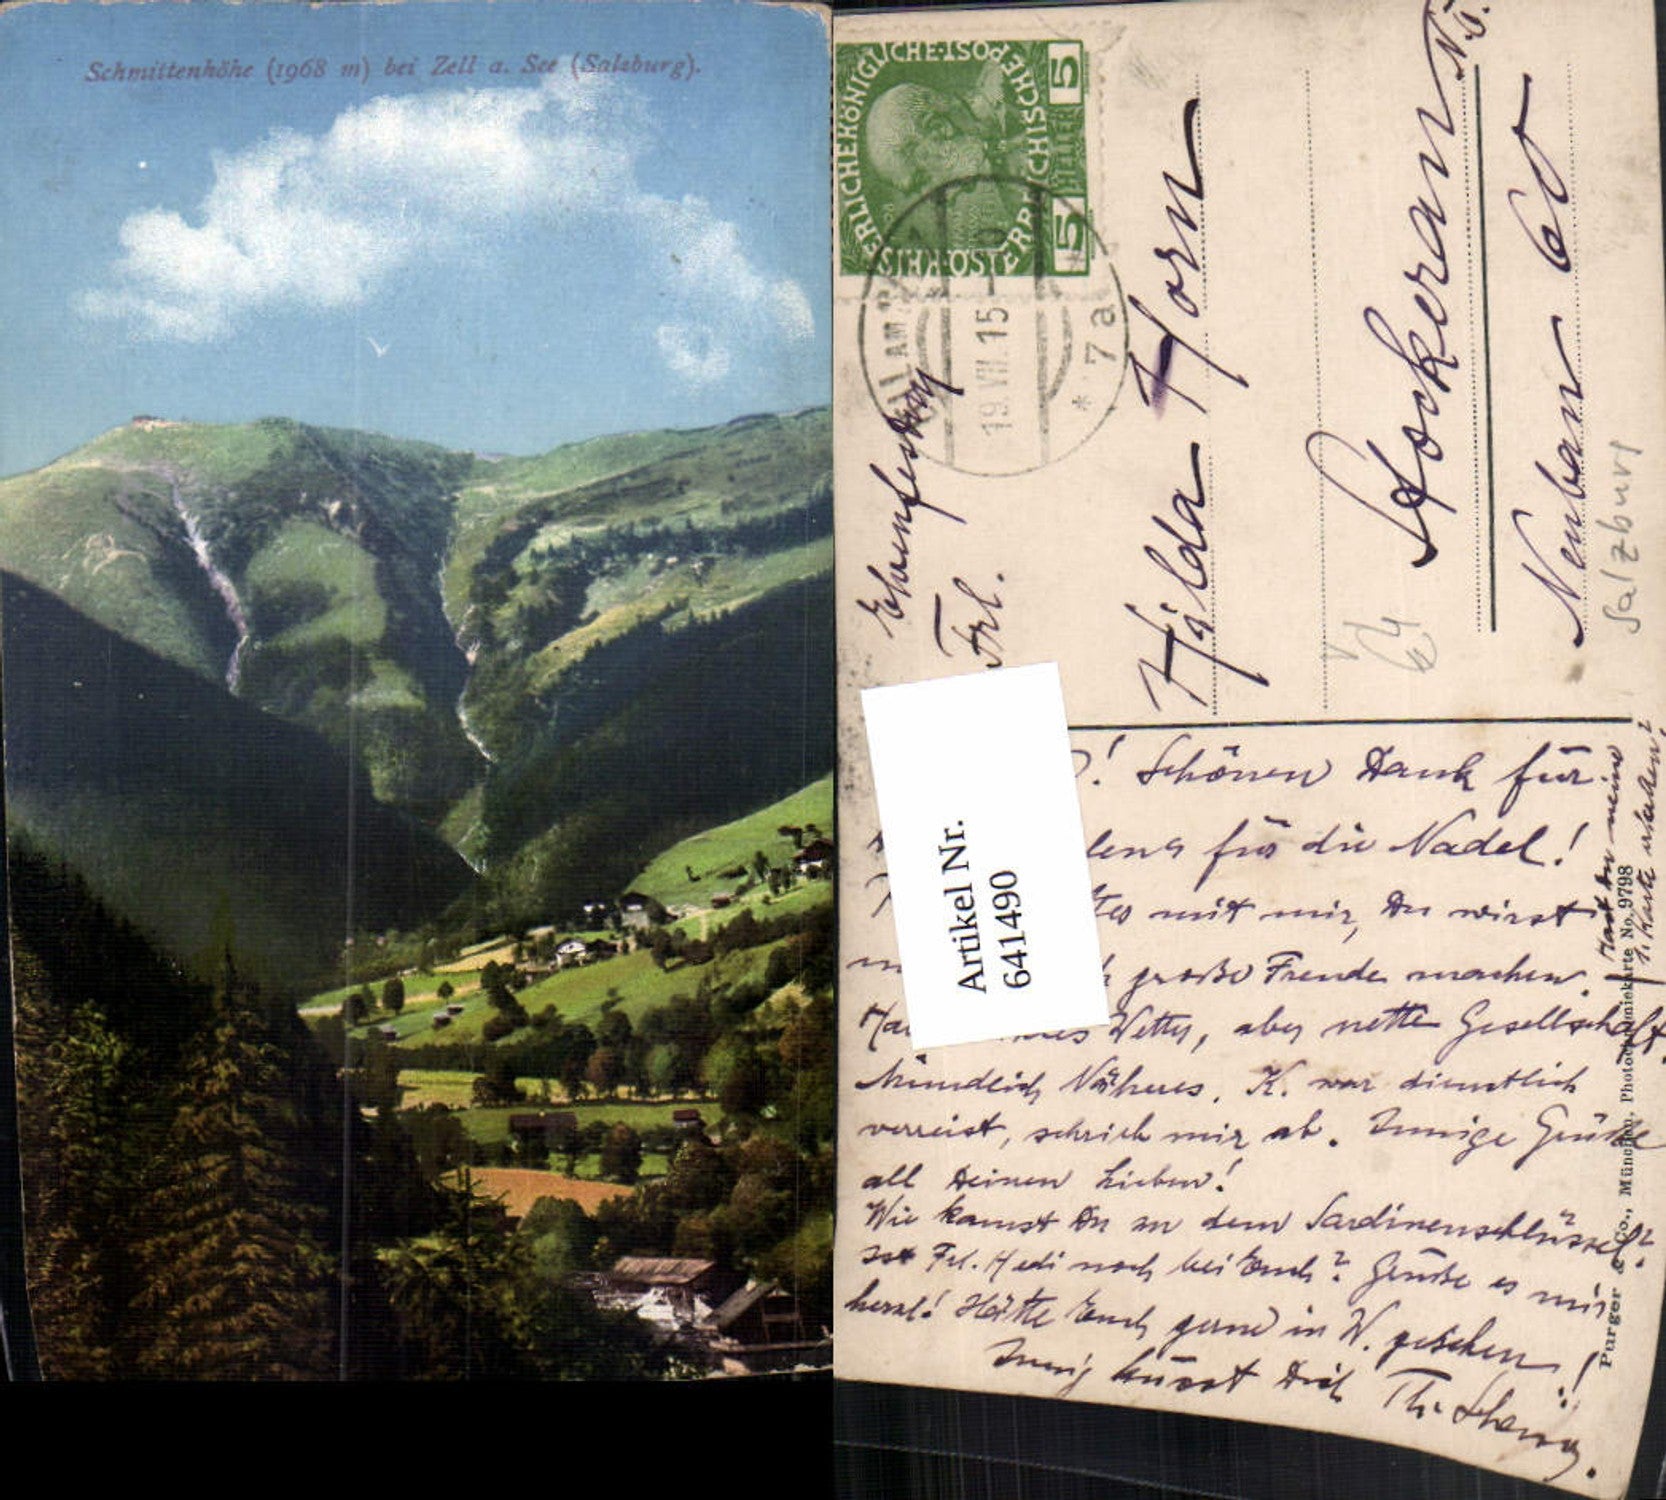 Schmittenhöhe (1968 m) bei Zell a. See (Salzburg).
KAISERLICHE KÖNIGLICHE ÖSTERREICHISCHE POST
5 HELLER 5
19.VII.15
* 7a
Frl.
Hilda Horn
Stockerau N.Ö.
Neubau 60
Salzburg
Artikel Nr.
641490
! Schönen Dank für
für die Nadel!
mit mir, Du wirst
große Freude machen.
Wetter, aber nette Gesellschaft.
Mündlich Näheres. K. war dienstlich
verreist, schrieb mir ab. Innige Grüße
all Deinen Lieben!
Wie kamst Du zu dem Sardinenschlüssel?
Ist Frl. Hedi noch bei Euch? Grüße es mir
herzl.! Hätte Euch gerne in W. gesehen!
Innig küsst Dich
Hast Du meine
1. Karte erhalten?
Purger & Co., München, Photochromiekarte No. 9798